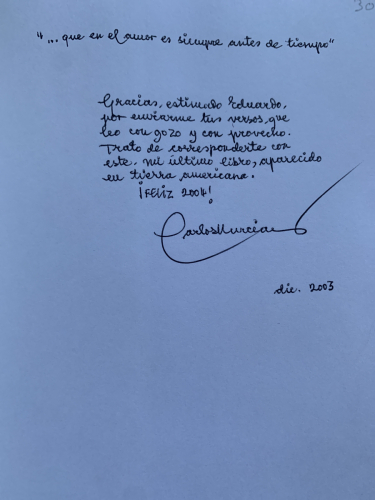 30
"... que en el amor es siempre antes de tiempo"
Gracias, estimado Eduardo,
por enviarme tus versos, que
leo con gozo y con provecho.
Trato de corresponderte con
este. mi último libro, aparecido
en tierra americana.
¡FELIZ 2004!
Carlos Murciano
dic. 2003